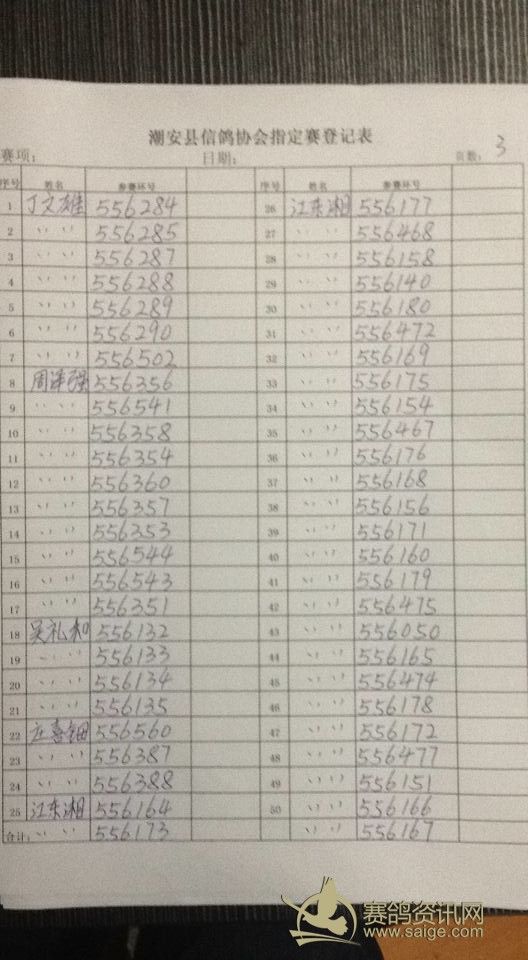 潮安县信鸽协会指定赛登记表
赛项： 日期： 页数：3
序号 姓名 参赛环号 序号 姓名 参赛环号
1 丁文雄 556284 26 江东湘 556177
2 〃 〃 556285 27 〃 〃 556468
3 〃 〃 556287 28 〃 〃 556158
4 〃 〃 556288 29 〃 〃 556140
5 〃 〃 556289 30 〃 〃 556180
6 〃 〃 556290 31 〃 〃 556472
7 〃 〃 556502 32 〃 〃 556169
8 周泽强 556356 33 〃 〃 556175
9 〃 〃 556541 34 〃 〃 556154
10 〃 〃 556358 35 〃 〃 556467
11 〃 〃 556354 36 〃 〃 556176
12 〃 〃 556360 37 〃 〃 556168
13 〃 〃 556357 38 〃 〃 556156
14 〃 〃 556353 39 〃 〃 556171
15 〃 〃 556544 40 〃 〃 556160
16 〃 〃 556543 41 〃 〃 556179
17 〃 〃 556351 42 〃 〃 556475
18 吴礼和 556132 43 〃 〃 556050
19 〃 〃 556133 44 〃 〃 556165
20 〃 〃 556134 45 〃 〃 556474
21 〃 〃 556135 46 〃 〃 556178
22 庄喜钿 556560 47 〃 〃 556172
23 〃 〃 556387 48 〃 〃 556477
24 〃 〃 556388 49 〃 〃 556151
25 江东湘 556164 50 〃 〃 556166
合计： 〃 〃 556173 〃 〃 556167
赛鸽资讯网
www.saige.com